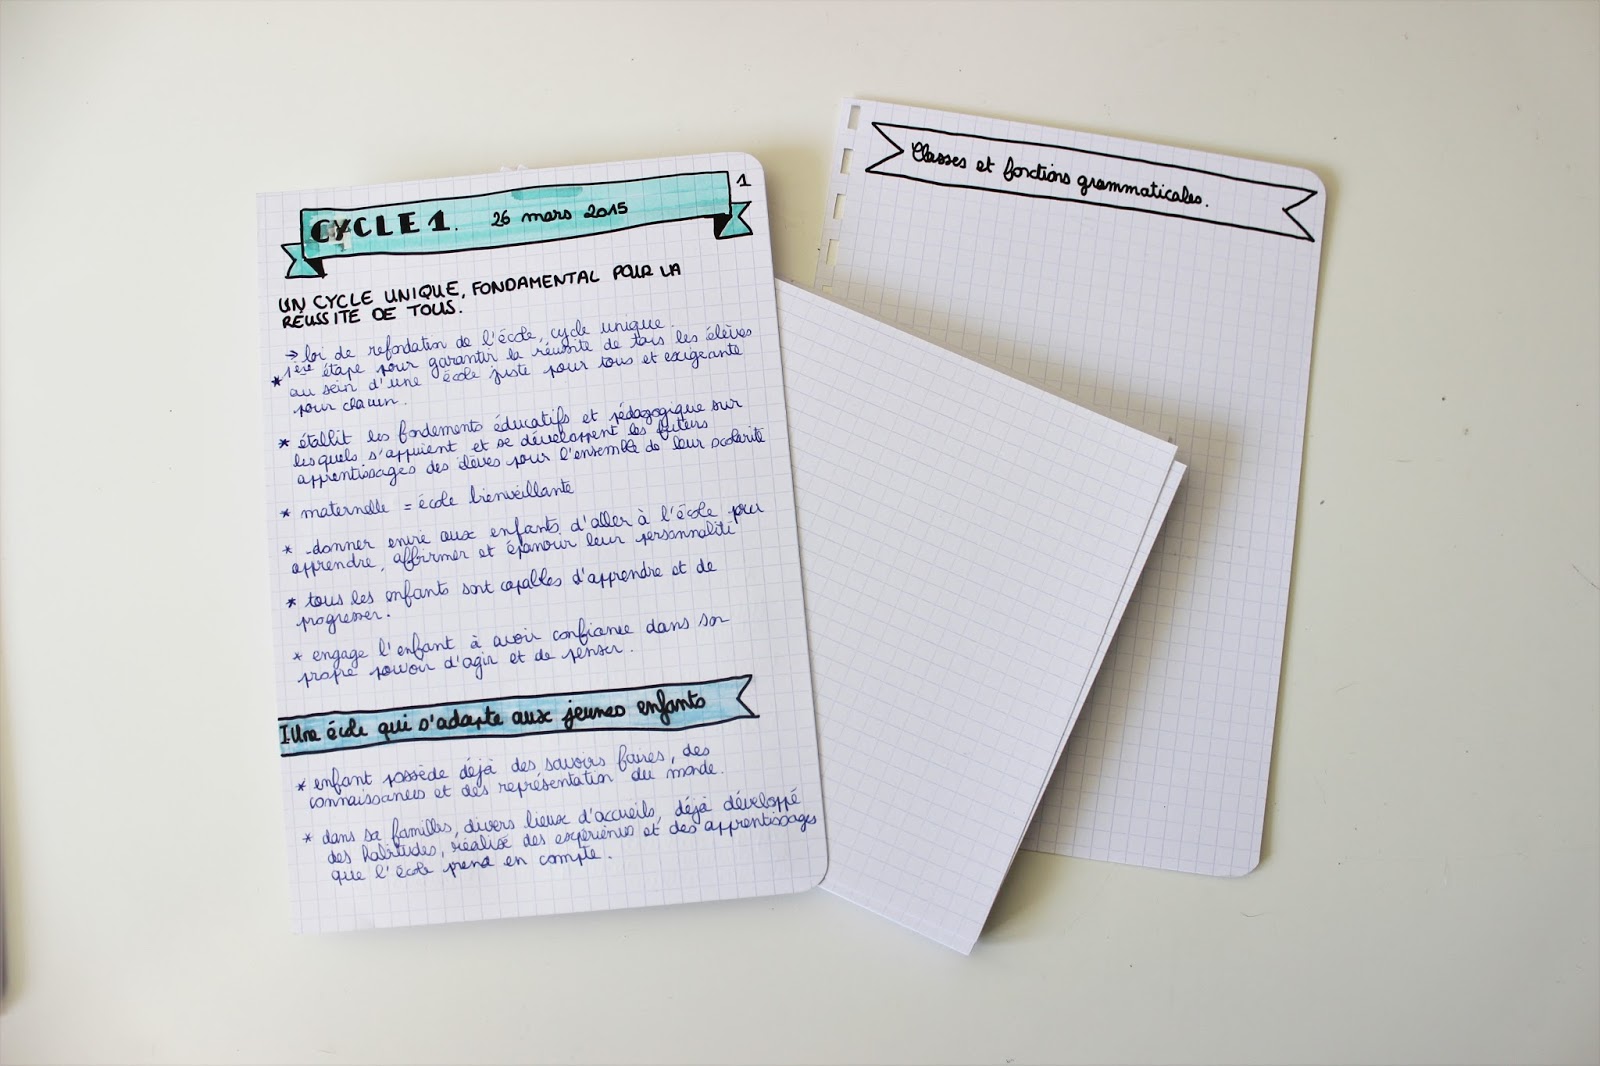 1
CYCLE 1. 26 mars 2015
UN CYCLE UNIQUE, FONDAMENTAL POUR LA
RÉUSSITE DE TOUS.
→ loi de refondation de l'école, cycle unique.
* 1ère étape pour garantir la réussite de tous les élèves
au sein d'une école juste pour tous et exigeante
pour chacun.
* établit les fondements éducatifs et pédagogique sur
lesquels s'appuient et se développent les futurs
apprentissages des élèves pour l'ensemble de leur scolarité
* maternelle = école bienveillante
* donner envie aux enfants d'aller à l'école pour
apprendre, affirmer et épanouir leur personnalité
* tous les enfants sont capables d'apprendre et de
progresser.
* engage l'enfant à avoir confiance dans son
propre pouvoir d'agir et de penser.
I. Une école qui s'adapte aux jeunes enfants
* enfant possède déjà des savoirs faires, des
connaissances et des représentation du monde.
* dans sa familles, divers lieux d'accueils, déjà développé
des habitudes, réalisé des expériences et des apprentissages
que l'école prend en compte.
Classes et fonctions grammaticales.